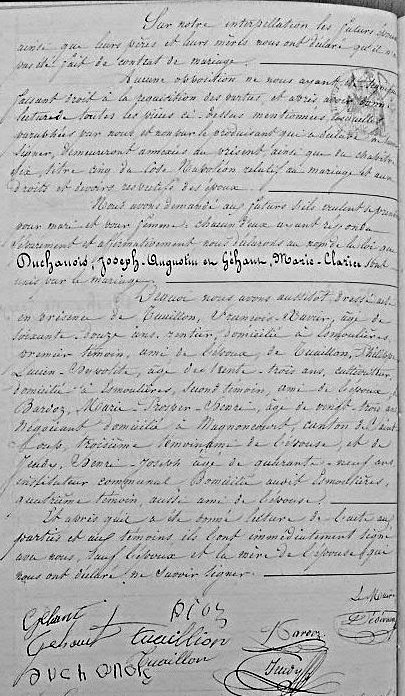 Sur notre interpellation les futurs époux
ainsi que leurs pères et leurs mères nous ont déclaré qu'il n'a
pas été fait de contrat de mariage.
Aucune opposition ne nous ayant été
faisant droit à la réquisition des parties et après avoir donné
lecture de toutes les pièces ci-dessus mentionnées, lesquelles
paraphées par nous et non par le produisant qui a déclaré ne savoir
signer, demeureront annexées au présent, ainsi que du chapitre
six, titre cinq du Code Napoléon relatif au mariage et aux
droits et devoirs respectifs des époux.
Nous avons demandé aux futurs s'ils veulent se prendre
pour mari et pour femme, chacun d'eux ayant répondu
séparément et affirmativement nous déclarons au nom de la loi que
Duchanois, Joseph-Augustin et Géhant, Marie-Clarice sont
unis par le mariage.
De quoi nous avons aussitôt dressé acte
en présence de Cuaillon, François-Xavier, âgé de
soixante-douze ans, rentier, domicilié à Esmoulières,
premier témoin, ami de l'époux, de Tuaillon,
Lucien-Hypolite, âgé de trente-trois ans, cultivateur,
domicilié à Esmoulières, second témoin, ami de l'époux, de
Bardoz, Marie-Prosper-Henri, âgé de vingt-trois ans
négociant domicilié à Magnoncourt, canton de Saint
Loup, troisième témoin ami de l'épouse, et de
Jeudy, Henri-Joseph âgé de quarante-neuf ans
instituteur communal, domicilié audit Esmoulières,
quatrième témoin, aussi ami de l'épouse.
Et après qu'il a été donné lecture de l'acte aux
parties et aux témoins ils l'ont immédiatement signé
avec nous, sauf l'époux et la mère de l'épouse qui
nous ont déclaré ne savoir signer.
Le Maire
Géhant
Géhant Tuaillon
Duchanois Tuaillon
Bardoz
Jeudy